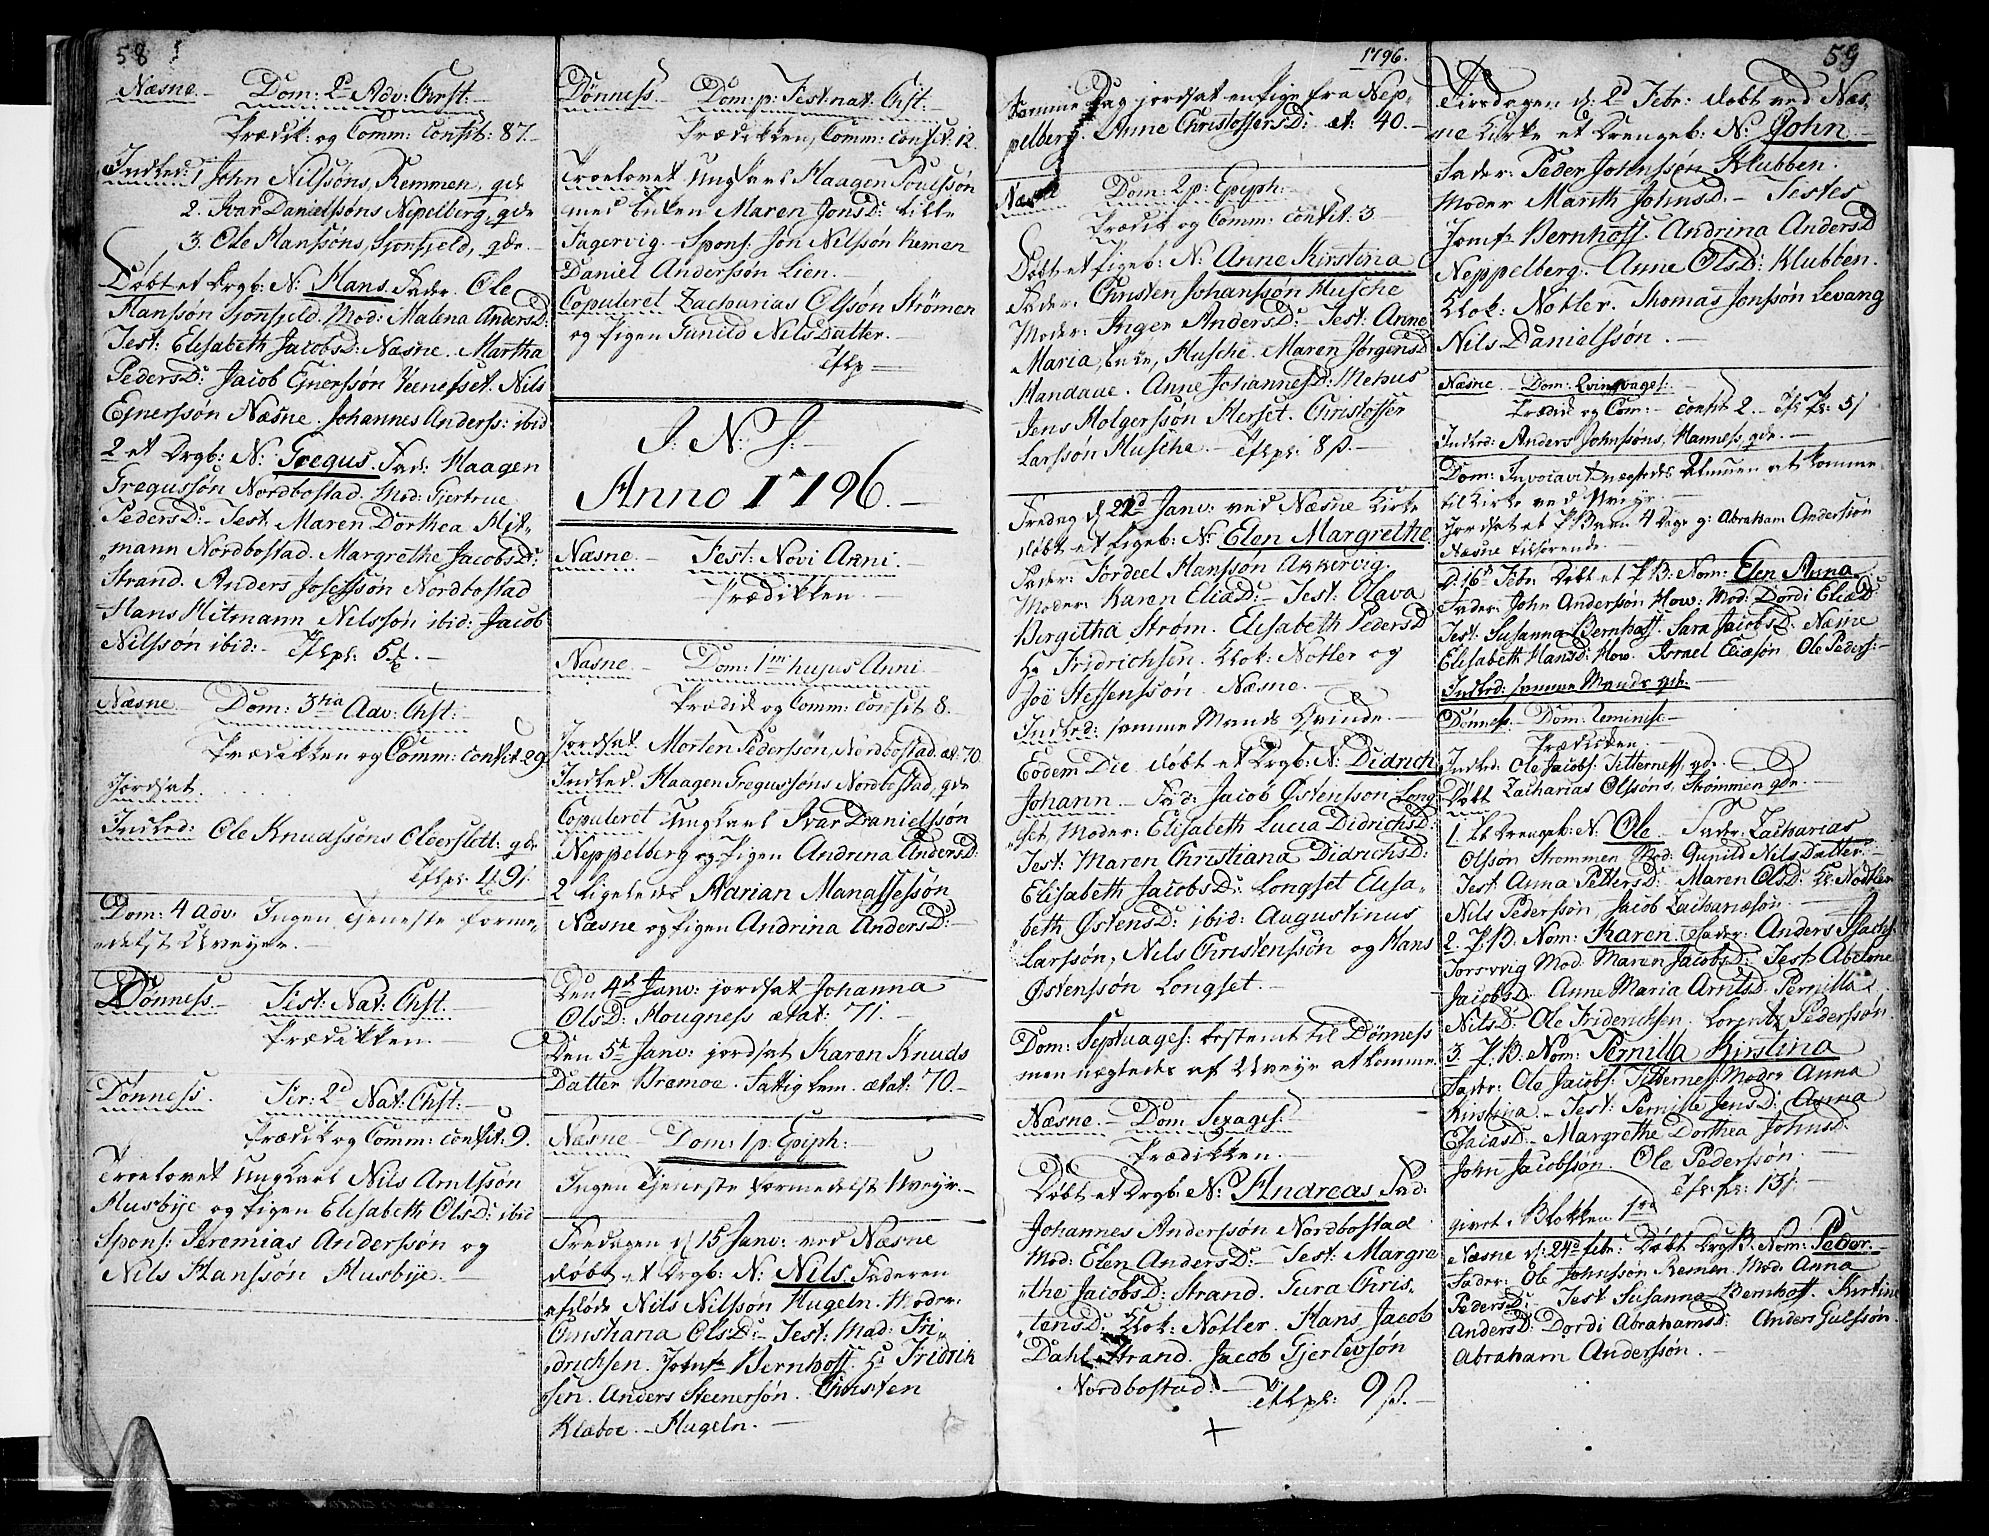 58
Næsne. Dom: 2d Adv: Chrst:
Prædik: og Comm: confit: 87.
Indled: 1 John Nilssøns, Remmen, qde
2. Ivar Danielssøns Nepelberg, qde
3. Ole Hanssøns, Sjonfjeld, qde.
Døbt et Drgb: N: Hans. Fader. Ole
Hanssøn Sjonfjeld. Mod: Malena AndersD:
Test: Elisabeth JacobsD: Næsne. Martha
PedersD: Jacob Ejnerssøn Nils
Ejnerssøn Næsne. Johannes Anderss: ibid
2 et Drgb: N: Gregus. Fad: Haagen
Gregussøn Nordbostad. Mod: Gjertrue
PedersD: Test: Maren Dorthea Hit„
mann Nordbostad. Margrethe JacobsD:
Strand. Anders Josephssøn Nordbostad
Hans Hitmann Nilssøn ibid: Jacob
Nilssøn ibid:
Næsne. Dom: 3tia Adv: Chst:
Prædikken og Comm: confit 29
Jordsat.
Indled: Ole Knudssøns qde
Dom: 4 Adv: Ingen Tjeneste forme„
edelst Uveyr.
Dønness. Fest: Nat: Chst:
Prædikken.
Dønness. Fer: 2d Nat: Chst:
Prædik og Comm: confit. 9.
Troelovet Ungkarl Nils Arntssøn
Husbye og Pigen Elisabeth OlsD: ibid
Spons: Jeremias Anderssøn og
Nils Hanssøn Husbye.
Dønness. Dom: p: Fest nat: Chst:
Prædikken, Comm: confit: 12.
Troelovet Ungkarl Haagen Poulssøn
med Enken Maren JonsD: Lille
Fagervig. Spons: Jon Nilssøn Remen
Daniel Anderssøn Lien.
Copuleret Zacharias Olssøn Strømen
og Pigen Gunild NilsDatter.
I: N: J:
Anno 1796.
Næsne. Fest: Novi Anni.
Prædikken.
Næsne. Dom: 1mi hujus Anni
Prædik og Comm: confit 8.
Jordsat Morten Pederssøn, Nordbostad. æt: 70
Indled: Haagen Gregussøns Nordbostad, qde
Copuleret Ungkarl Ivar Danielssøn
Neppelberg og Pigen Andrina AndersD:
2 ligeledes Adrian Manassessøn
Næsne og Pigen Andrina AndersD:
Den 4de Janv: jordsat Johanna
OlsD: Hougness ætat: 71.
Den 5te Janv: jordsat Karen Knuds
Datter Bremoe. Fattig Lem. ætat: 70.
Næsne Dom: 1 p: Epiph:
Ingen Tjeneste formedelst Uveyr.
Fredagen d: 15 Janv: ved Næsne
døbt et Drgb: N: Nils. Faderen
Nils Nilssøn Hugeln. Moder:
Christiana OlsD: Test: Mad: Fri„
drichsen. Jomfr Bernhoff. Hr Fridrik
sen. Anders Steenersøn. Christen
Klæboe. Hugeln.
1796.
Samme Dag jordsat en Pige fra Nep„
pelberg. Anne ChristoffersD: æt: 40.
Næsne Dom: 2 p: Epiph:
Prædik og Comm: confit. 3
Døbt et Pigeb: N: Anne Kirstina
Fader: Christen Johanssøn Husche
Moder: Inger AndersD: Test: Anne
Maria, Enke, Husche. Maren JørgensD
Handaue. Anne JohannesD: Mehus
Jens Holgerssøn Herset. Christoffer
Larssøn Husche. 8 ß.
Fredag d: 22d Janv: ved Næsne Kirke
døbt et Pigeb: N: Elen Margrethe
Fader: Tordeel Hanssøn Akkervig.
Moder: Karen EliæD: Test: Olava
Birgitha Strøm. Elisabeth PedersD
Hr Fridrichsen. Klok: Notler og
Joe Steffenssøn. Næsne.
Indled: samme Mands Qvinde.
Eodem Die døbt et Drgb: N: Didrich
Johann Fad: Jacob Østenssøn Long
set. Moder: Elisabeth Lucia DidrichsD:
Test: Maren Christiana DidrichsD:
Elisabeth JacobsD: Longset Elisa„
beth ØstensD: ibid: Augustinus
Larssøn, Nils Christenssøn og Hans
Østenssøn Longset.
Dom: Septuages: bestemt til Dønness
men nægtedes af Uveyr at komme
Næsne. Dom: Sexages:
Prædikken.
Døbt et Drgb: N: Andreas. Fad:
Johannes Anderssøn Nordbostad
Mod: Elen AndersD: Test: Margre
„the JacobsD: Strand. Gura Chris„
„tensD: Klok: Notler. Hans Jacob
Dahl Strand. Jacob Gjertevsøn
Nordbostad. 9 ß.
59
Tirsdagen d: 2d Febr: døbt ved Næs„
ne Kirke et Drengeb: N: John
Fader: Peder Johnssøn Klubben.
Moder Marith JohnsD: Testes
Jomfr: Bernhoff. Andrina AndersD
Neppelberg. Anne OlsD: Klubben.
Klok: Notler. Thomas Jonssøn Levang
Nils Danielssøn.
Næsne. Dom: Qvinqvages:
Prædik og Com: confit 2.
Indled: Anders Johnssøns, Hanness, qde.
Dom: Invocavit nægtedes Almuen at komme
til Kirke ved Uveyr.
Jordsat et P Barn 4 Dage g: Abraham Anderssøn
Næsne tilhørende.
D: 16de Febr: Døbt et P B: Nom: Elen Anna.
Fader: John Anderssøn How: Mod: Dordi EliæD:
Test: Susanna Bernhoff. Sara JacobsD: Næsne
Elisabeth HansD: How. Israel Eliæsøn Ole Peders:
Indled: samme Mands qde.
Dønness. Dom: Reminisc
Prædikken
Indled: Ole Jacobs: Titterness, qde.
Zacharias Olssøns, Strømmen qde.
Døbt
1. Et Drengeb: N: Ole. Fader: Zacharias
Olssøn Strømmen Mod: Gunild NilsDatter.
Test Anna PettersD: Maren OlsD:
Nils Pederssøn Jacob Zachariæsøn.
2. P: B: Nom: Karen. Fader: Anders
Torsvig Mod: Maren JacobsD: Test Abelone
JacobsD. Anne Maria ArntsD. Pernilla
NilsD: Ole Friderichsen. Lorentz Pederssøn.
3. P: B: Nom: Pernilla Kirstina
Fader: Ole Jacobs: Titterness. Moder Anna
Kirstina. Test: Pernille JensD: Anna
EsaiasD. Margrethe Dorthea JohnsD
John Jacobssøn. Ole Pederssøn.
13ß.
Næsne d: 24d Febr: Døbt DrgB: Nom: Peder.
Fader: Ole Johnssøn Remen. Mod Anna
PedersD: Test Susanna Bernhoff. Kirstine
AndersD: Dordi AbrahamsD: Anders Gulssøn.
Abraham Anderssøn.